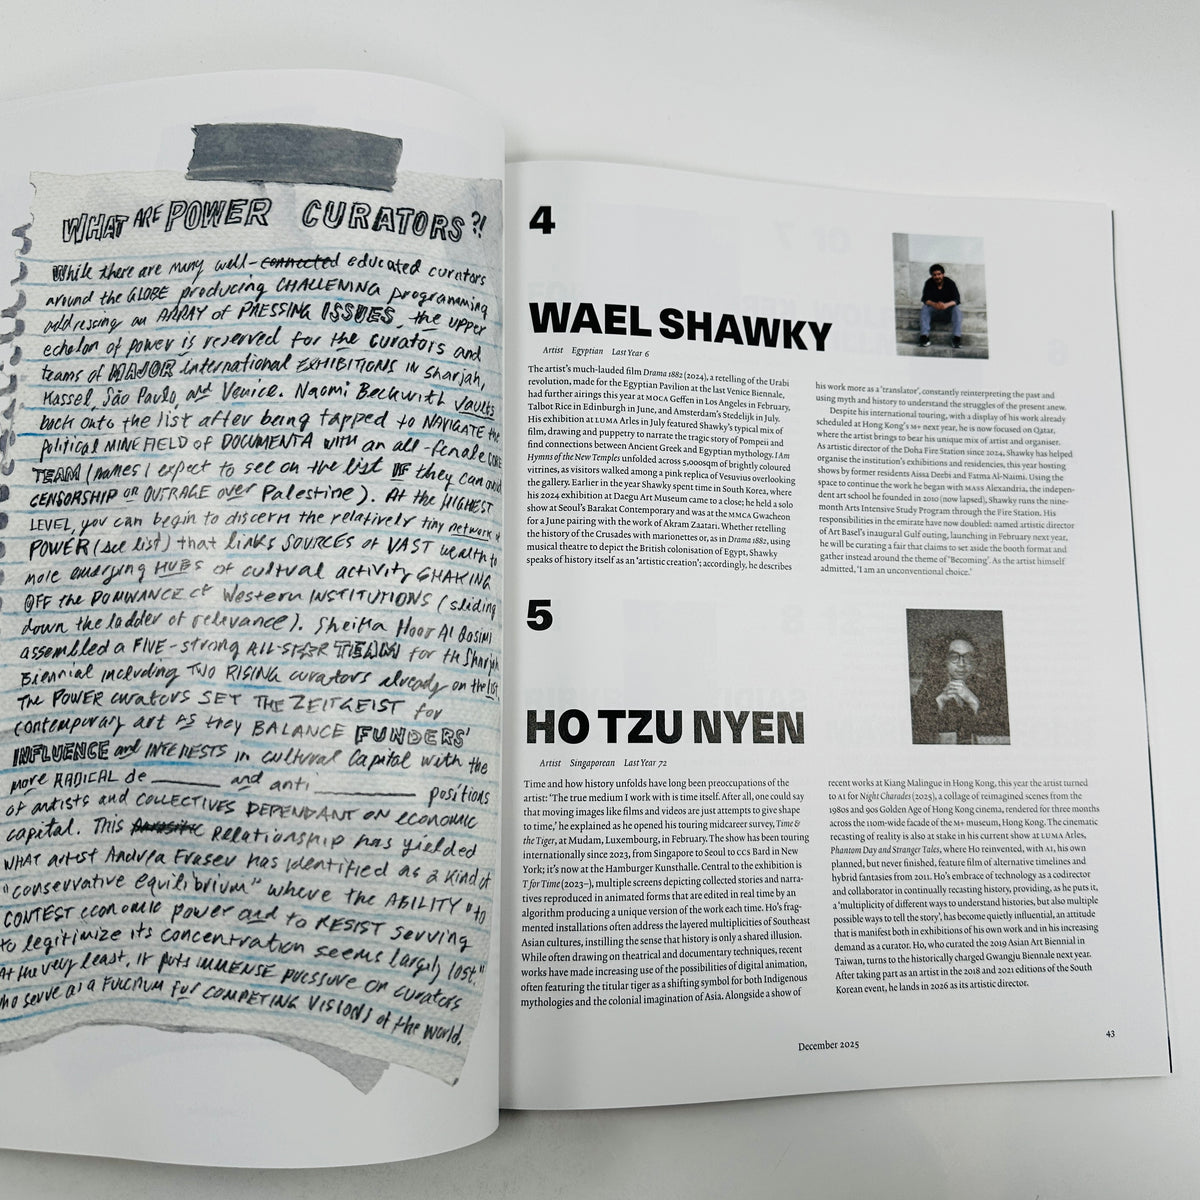 WHAT ARE POWER CURATORS?!
While there are many well-connected educated curators
around the GLOBE producing CHALLENING programming
addressing an ARRAY of PRESSING ISSUES, the upper
echelon of power is reserved for the curators and
teams of MAJOR international EXHIBITIONS in Sharjah,
Kassel, São Paulo, and Venice. Naomi Beckwith vaults
back onto the list after being tapped to NAVIGATE the
political MINEFIELD of DOCUMENTA with an all-female CORE
TEAM (names I expect to see on the list IF they can avoid
CENSORSHIP OR OUTRAGE over Palestine). At the HIGHEST
LEVEL, you can begin to discern the relatively tiny network of
POWER (see list) that links SOURCES of VAST wealth to
more emerging HUBS of cultural activity SHAKING
OFF the DOMINANCE of Western INSTITUTIONS (sliding
down the ladder of relevance). Sheikha Hoor Al Qasimi
assembled a FIVE-strong ALL-STAR TEAM for the Sharjah
Biennial including TWO RISING curators already on the list.
The POWER curators SET THE ZEITGEIST for
contemporary art as they BALANCE FUNDERS'
INFLUENCE and INTERESTS in cultural capital with the
more RADICAL de ______ and anti ______ positions
of artists and COLLECTIVES DEPENDANT ON economic
capital. This relationship has yielded
WHAT artist Andrea Fraser has identified as a kind of
"conservative equilibrium" where the ABILITY "to
CONTEST economic power and to RESIST serving
to legitimize its concentration seems largely lost."
At the very least, it puts IMMENSE pressure on curators
who serve as a FULCRUM for COMPETING VISIONS of the world.
4
WAEL SHAWKY
Artist Egyptian Last Year 6
The artist's much-lauded film Drama 1882 (2024), a retelling of the Urabi
revolution, made for the Egyptian Pavilion at the last Venice Biennale,
had further airings this year at MOCA Geffen in Los Angeles in February,
Talbot Rice in Edinburgh in June, and Amsterdam's Stedelijk in July.
His exhibition at LUMA Arles in July featured Shawky's typical mix of
film, drawing and puppetry to narrate the tragic story of Pompeii and
find connections between Ancient Greek and Egyptian mythology. I Am
Hymns of the New Temples unfolded across 5,000sqm of brightly coloured
vitrines, as visitors walked among a pink replica of Vesuvius overlooking
the gallery. Earlier in the year Shawky spent time in South Korea, where
his 2024 exhibition at Daegu Art Museum came to a close; he held a solo
show at Seoul's Barakat Contemporary and was at the MMCA Gwacheon
for a June pairing with the work of Akram Zaatari. Whether retelling
the history of the Crusades with marionettes or, as in Drama 1882, using
musical theatre to depict the British colonisation of Egypt, Shawky
speaks of history itself as an 'artistic creation'; accordingly, he describes
his work more as a 'translator', constantly reinterpreting the past and
using myth and history to understand the struggles of the present anew.
Despite his international touring, with a display of his work already
scheduled at Hong Kong's M+ next year, he is now focused on Qatar,
where the artist brings to bear his unique mix of artist and organiser.
As artistic director of the Doha Fire Station since 2024, Shawky has helped
organise the institution's exhibitions and residencies, this year hosting
shows by former residents Aissa Deebi and Fatma Al-Naimi. Using the
space to continue the work he began with MASS Alexandria, the indepen-
dent art school he founded in 2010 (now lapsed), Shawky runs the nine-
month Arts Intensive Study Program through the Fire Station. His
responsibilities in the emirate have now doubled: named artistic director
of Art Basel's inaugural Gulf outing, launching in February next year,
he will be curating a fair that claims to set aside the booth format and
gather instead around the theme of 'Becoming'. As the artist himself
admitted, 'I am an unconventional choice.'
5
HO TZU NYEN
Artist Singaporean Last Year 72
Time and how history unfolds have long been preoccupations of the
artist: 'The true medium I work with is time itself. After all, one could say
that moving images like films and videos are just attempts to give shape
to time,' he explained as he opened his touring midcareer survey, Time &
the Tiger, at Mudam, Luxembourg, in February. The show has been touring
internationally since 2023, from Singapore to Seoul to CCS Bard in New
York; it's now at the Hamburger Kunsthalle. Central to the exhibition is
T for Time (2023–), multiple screens depicting collected stories and narra-
tives reproduced in animated forms that are edited in real time by an
algorithm producing a unique version of the work each time. Ho's frag-
mented installations often address the layered multiplicities of Southeast
Asian cultures, instilling the sense that history is only a shared illusion.
While often drawing on theatrical and documentary techniques, recent
works have made increasing use of the possibilities of digital animation,
often featuring the titular tiger as a shifting symbol for both Indigenous
mythologies and the colonial imagination of Asia. Alongside a show of
recent works at Kiang Malingue in Hong Kong, this year the artist turned
to AI for Night Charades (2025), a collage of reimagined scenes from the
1980s and 90s Golden Age of Hong Kong cinema, rendered for three months
across the 110m-wide facade of the M+ museum, Hong Kong. The cinematic
recasting of reality is also at stake in his current show at LUMA Arles,
Phantom Day and Stranger Tales, where Ho reinvented, with AI, his own
planned, but never finished, feature film of alternative timelines and
hybrid fantasies from 2011. Ho's embrace of technology as a codirector
and collaborator in continually recasting history, providing, as he puts it,
a 'multiplicity of different ways to understand histories, but also multiple
possible ways to tell the story', has become quietly influential, an attitude
that is manifest both in exhibitions of his own work and in his increasing
demand as a curator. Ho, who curated the 2019 Asian Art Biennial in
Taiwan, turns to the historically charged Gwangju Biennale next year.
After taking part as an artist in the 2018 and 2021 editions of the South
Korean event, he lands in 2026 as its artistic director.
December 2025
43